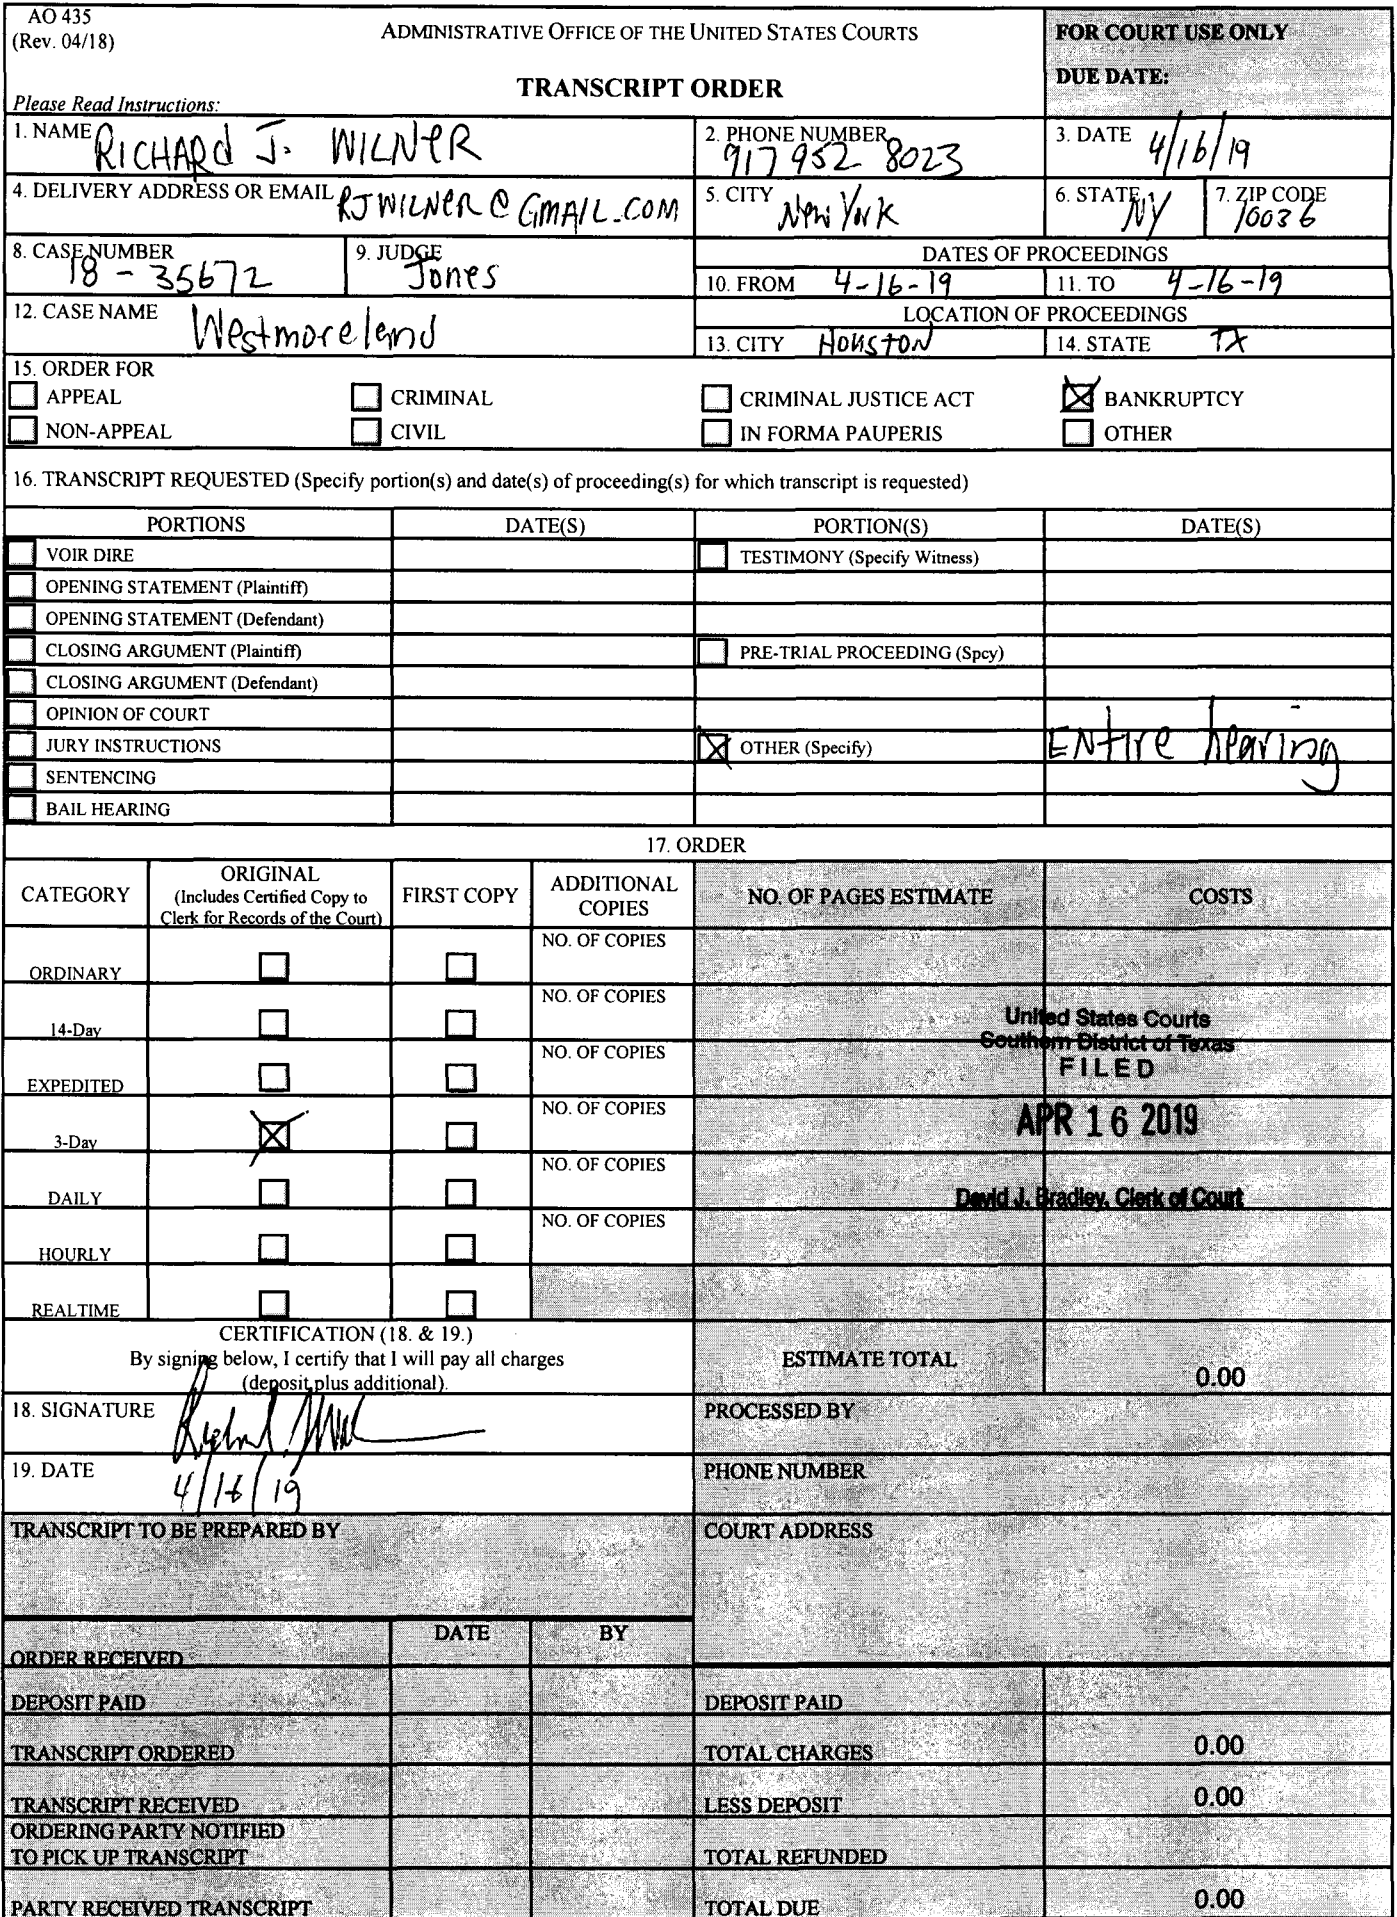 AO 435
(Rev. 04/18)
ADMINISTRATIVE OFFICE OF THE UNITED STATES COURTS
FOR COURT USE ONLY
DUE DATE:
TRANSCRIPT ORDER
Please Read Instructions:
1. NAME RICHARd J. WILNeR
2. PHONE NUMBER 917 952 8023
3. DATE 4/16/19
4. DELIVERY ADDRESS OR EMAIL RJWILNeR@GMAIL.COM
5. CITY New York
6. STATE NY
7. ZIP CODE 10036
8. CASE NUMBER 18-35672
9. JUDGE Jones
DATES OF PROCEEDINGS
10. FROM 4-16-19
11. TO 4-16-19
12. CASE NAME Westmoreland
LOCATION OF PROCEEDINGS
13. CITY HOUSTON
14. STATE TX
15. ORDER FOR
APPEAL CRIMINAL CRIMINAL JUSTICE ACT BANKRUPTCY
NON-APPEAL CIVIL IN FORMA PAUPERIS OTHER
16. TRANSCRIPT REQUESTED (Specify portion(s) and date(s) of proceeding(s) for which transcript is requested)
PORTIONS DATE(S) PORTION(S) DATE(S)
VOIR DIRE TESTIMONY (Specify Witness)
OPENING STATEMENT (Plaintiff)
OPENING STATEMENT (Defendant)
CLOSING ARGUMENT (Plaintiff) PRE-TRIAL PROCEEDING (Spcy)
CLOSING ARGUMENT (Defendant)
OPINION OF COURT
JURY INSTRUCTIONS OTHER (Specify) ENtire hearing
SENTENCING
BAIL HEARING
17. ORDER
CATEGORY
ORIGINAL
(Includes Certified Copy to
Clerk for Records of the Court)
FIRST COPY
ADDITIONAL
COPIES
NO. OF PAGES ESTIMATE
COSTS
NO. OF COPIES
ORDINARY
NO. OF COPIES
14-Day
United States Courts
Southern District of Texas
FILED
NO. OF COPIES
EXPEDITED
NO. OF COPIES
3-Day
APR 16 2019
NO. OF COPIES
DAILY
David J. Bradley, Clerk of Court
NO. OF COPIES
HOURLY
REALTIME
CERTIFICATION (18. & 19.)
By signing below, I certify that I will pay all charges
(deposit plus additional).
ESTIMATE TOTAL
0.00
18. SIGNATURE
PROCESSED BY
19. DATE 4/16/19
PHONE NUMBER
TRANSCRIPT TO BE PREPARED BY
COURT ADDRESS
DATE BY
ORDER RECEIVED
DEPOSIT PAID DEPOSIT PAID
TRANSCRIPT ORDERED TOTAL CHARGES 0.00
TRANSCRIPT RECEIVED LESS DEPOSIT 0.00
ORDERING PARTY NOTIFIED
TO PICK UP TRANSCRIPT TOTAL REFUNDED
PARTY RECEIVED TRANSCRIPT TOTAL DUE 0.00